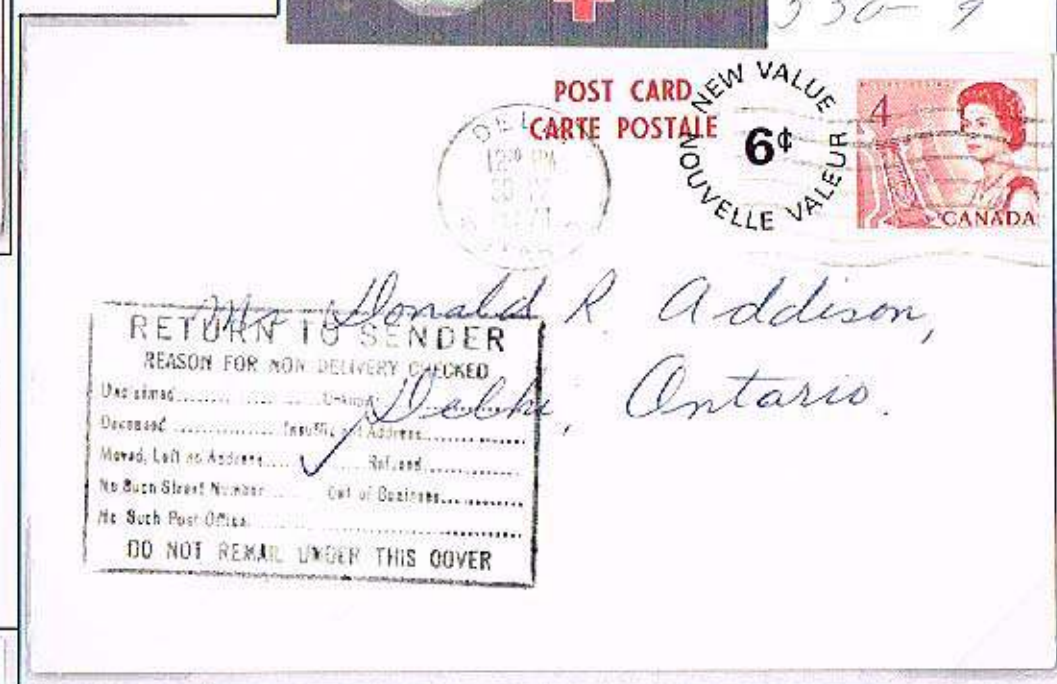 POST CARD
CARTE POSTALE
NEW VALUE
6¢
NOUVELLE VALEUR
4
CANADA
Donald R. Addison,
Delhi, Ontario.
RETURN TO SENDER
REASON FOR NON DELIVERY CHECKED
Unclaimed.................... Unknown
Deceased ................ Insufficient Address................
Moved, Left no Address..... Refused.............
No Such Street Number....... Out of Business..............
No Such Post Office............................
DO NOT REMAIL UNDER THIS COVER